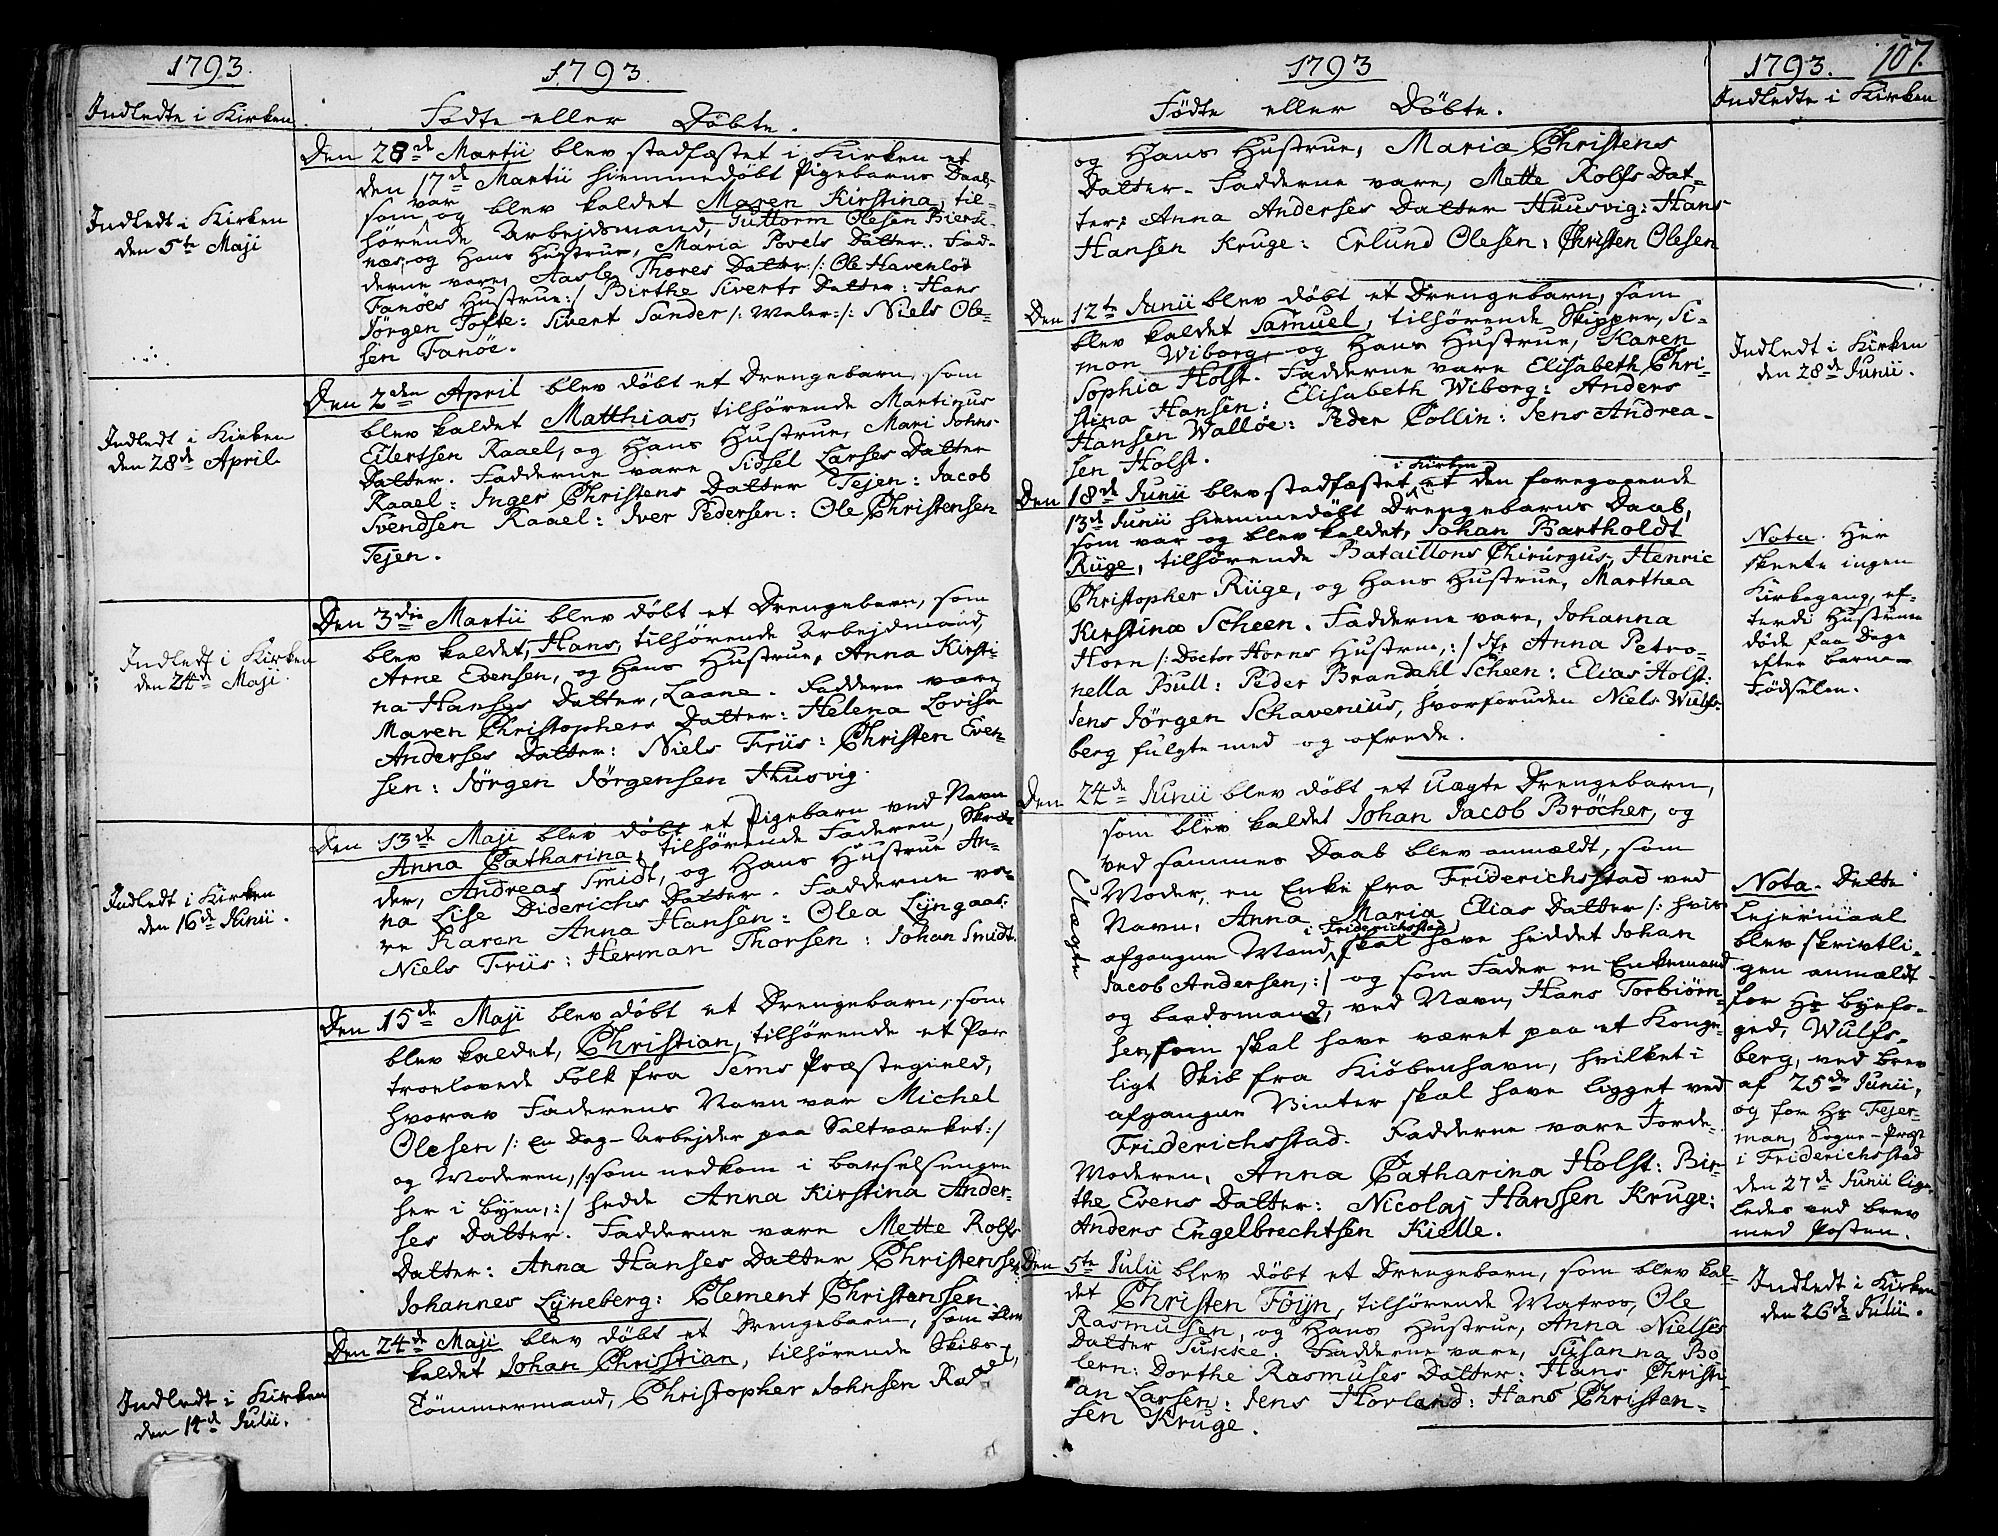 1793.
Indledte i Kirken
Indledt i Kirken
den 5te Maji
Indledt i Kirken
den 28de April
Indledt i Kirken
den 24de Maji
Indledt i Kirken
den 16de Junii.
Indledt i Kirken
den 14de Julii.
1793.
Fødte eller Døbte.
Den 28de Martii blev stadfæstet i Kirken et
den 17de Martii hiemmedøbt Pigebarns Daab,
som var og blev kaldet Maren Kirstina, til-
hørende Arbejdsmand, Guttorm Olesen Bierke-
næs, og Hans Hustrue, Maria Povels Datter. Fad-
derne vare, Aasle Thores Datter /: Ole Havenlöt
Fanöes Hustrue :/ Birthe Siverts Datter: Hans
Jörgen Tofte: Sivert Sander /: Weler :/: Niels Ole-
sen Fanöe.
Den 2den April blev døbt et Drengebarn, som
blev kaldet Matthias, tilhørende Martinus
Eilertsen Raael, og Hans Hustrue, Mari Johns-
Datter. Fadderne vare Sidsel Larses Datter
Raael: Inger Christens Datter Tejen: Jacob
Svendsen Raael: Iver Pedersen: Ole Christensen
Tejen.
Den 3die Martii blev døbt et Drengebarn, som
blev kaldet, Hans, tilhørende Arbejdmand,
Arne Evensen, og Hans Hustrue, Anna Kirsti-
na Hanses Datter, Laane. Fadderne vare
Maren Christophers Datter: Helena Lovisa
Anderses Datter: Niels Friis: Christen Even-
sen: Jörgen Jörgensen Huusvig.
Den 13de Maji blev døbt et Pigebarn ved Navn
Anna Catharina, tilhørende Faderen, Skræ-
der, Andreas Smidt, og Hans Hustrue An-
na Lise Diderichs Datter. Fadderne va-
re Karen Anna Hansen: Olea Lyngaas:
Niels Friis: Herman Thorsen: Johan Smidt.
Den 15de Maji blev døbt et Drengebarn, som
blev kaldet, Christian, tilhørende et Par
troelovede Folk fra Sems Præstegield,
hvorav Faderens Navn var Michel
Olesen /: En Dag-Arbejder paa Saltværket :/
og Moderen, /: som nedkom i barselsengen
her i byen, :/ hedde Anna Kirstina Ander-
ses Datter. Fadderne vare Mette Rolfs
Datter: Anna Hanses Datter Christensen:
Johannes Lyneberg: Clement Christensen.
Den 24de Maji blev døbt et Drengebarn, som blev
kaldet Johan Christian, tilhørende Skibs-
Tömmermand, Christopher Johnsen Raael,
1793
Fødte eller Døbte.
og Hans Hustrue, Maria Christens
Datter. Fadderne vare, Mette Rolfs Dat-
ter: Anna Anderses Datter Huusvig: Hans
Hansen Kruge: Erlund Olesen: Christen Olesen
Den 12te Junii blev døbt et Drengebarn, som
blev kaldet Samuel, tilhørende Skipper, Si-
mon Wiborg, og Hans Hustrue, Karen
Sophia Holst. Fadderne vare Elisabeth Chri-
stina Hansen: Elisabeth Wiborg: Anders
Hansen Wallöe: Peder Collin: Jens Andrea-
sen Holst.
i Kirken
Den 18de Junii blev stadfæstet et den foregaaende
13de Junii hiemmedøbt Drengebarns Daab,
som var og blev kaldet, Johan Bartholdt
Rüge, tilhørende Bataillons Chirurgus, Henric
Christopher Rüge, og Hans Hustrue, Marthea
Kirstina Scheen. Fadderne vare, Johanna
Horn /: Doctor Horns Hustrue, :/ Jfr Anna Petro-
nella Bull: Peder Brandahl Scheen: Elias Holst:
Jens Jörgen Schavenius, hvorforuden Niels Wulfs-
berg fulgte med og ofrede.
Den 24de Junii blev døbt et Uægte Drengebarn,
som blev kaldet Johan Jacob Bröcher, og
ved sammes Daab blev anmældt, som
Moder, en Enke fra Friderichsstad ved
Navn, Anna Maria Elias Datter /: hvis
i Friderichsstad
afgangne Mand skal have heddet Johan
Jacob Andersen, :/ og som Fader en Enkemand
og baadsmand, ved Navn, Hans Torbiörn-
sen, som skal have været paa et Konge-
ligt Skib fra Kiöbenhavn, hvilket i
afgangne Vinter skal have ligget ved
Friderichsstad. Fadderne vare Jorde-
Moderen, Anna Catharina Holst: Bir-
the Evens Datter: Nicolaj Hanssen Kruge:
Anders Engelbrechtsen Kielle.
Uægte
Den 5te Julii blev døbt et Drengebarn, som blev kal-
det Christen Föyn, tilhørende Matros, Ole
Rasmusen, og Hans Hustrue, Anna Nielses
Datter Sukke. Fadderne vare, Susanna Bo
lern: Dorthe Rasmuses Datter: Hans Christi-
an Larsen: Jens Horland: Hans Christen-
sen Kruge.
1793. 107.
Indledte i Kirken
Indledt i Kirken
den 28de Junii.
Nota. Her
skeete ingen
Kirkegang, ef-
terdi Hustruen
døde faa Dage
efter barne-
Fødselen.
Nota. Dette
Lejermaal
blev skrivtli-
gen anmældt
for Hr byefo-
ged, Wulfs-
berg, ved brev
af 25de Junii,
og for Hr Fejer-
man, Sogne-Præst
i Friderichsstad
den 27de Junii lige-
ledes ved brev
med Posten.
Indledt i Kirken
den 26de Julii.